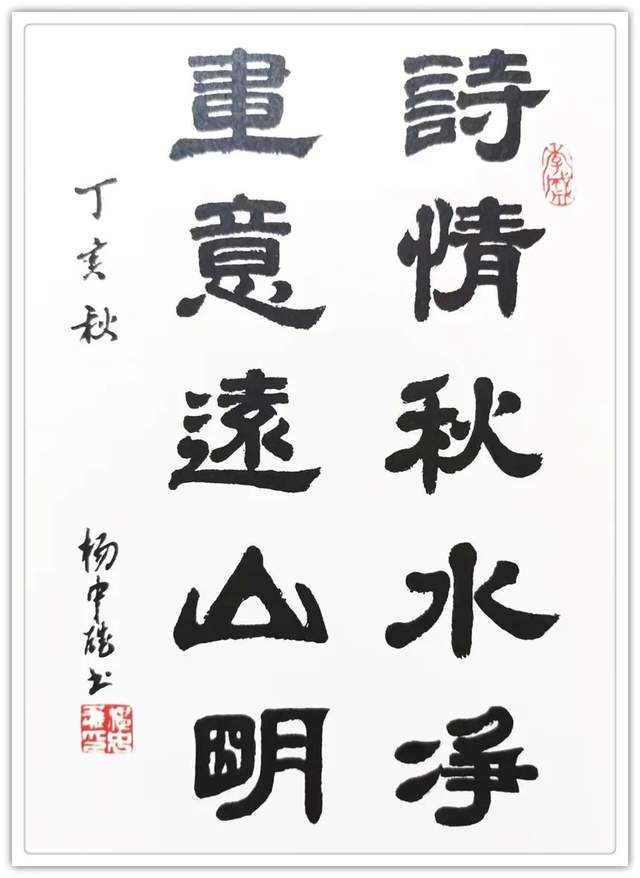 詩情秋水净
畫意遠山明
丁亥秋
杨中雄书